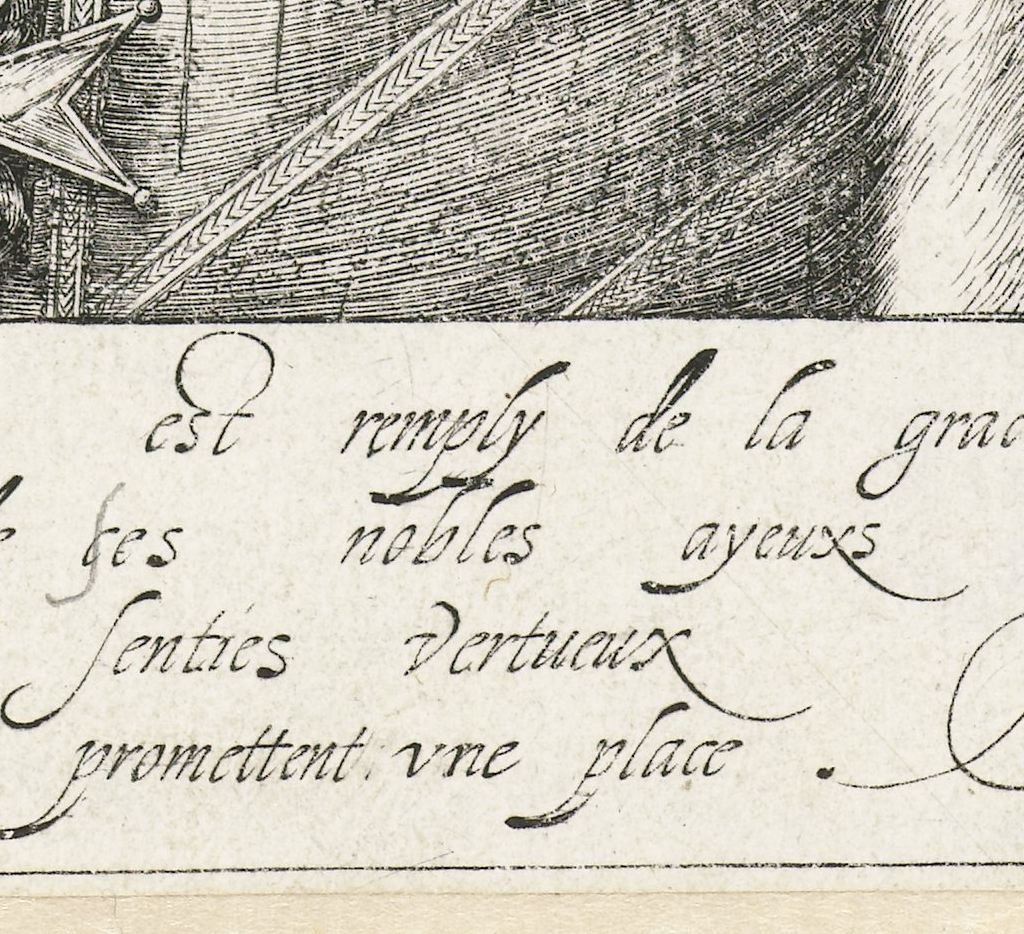 est remply de la grac
e ses nobles ayeuxs
senties vertueux
promettent vne place .